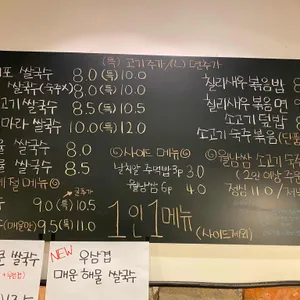 (특) 고기추가/(L) 면추가
포 쌀국수 8.0 (특) 10.0
쌀국수(숙주X) 8.0 (특) 10.0
고기 쌀국수 8.5 (특) 10.5
마라 쌀국수 10.0 (특) 12.0
쌀국수 8.0
쌀국수 8.5
메뉴
9.0 (특) 10.5
(매운맛) 9.5 (특) 11.0
칠리새우 볶음밥 8
칠리새우 볶음면
소고기 덮밥
소고기 숙주 볶음 (단품
사이드 메뉴
날치알 주먹밥 3P 3.0
월남쌈 6P 4.0
월남쌈 소고기
(2인 이상 주문
점심 11.0 /
1인 1메뉴
(사이드제외)
쌀국수
NEW 우삼겹
매운 해물 쌀국수